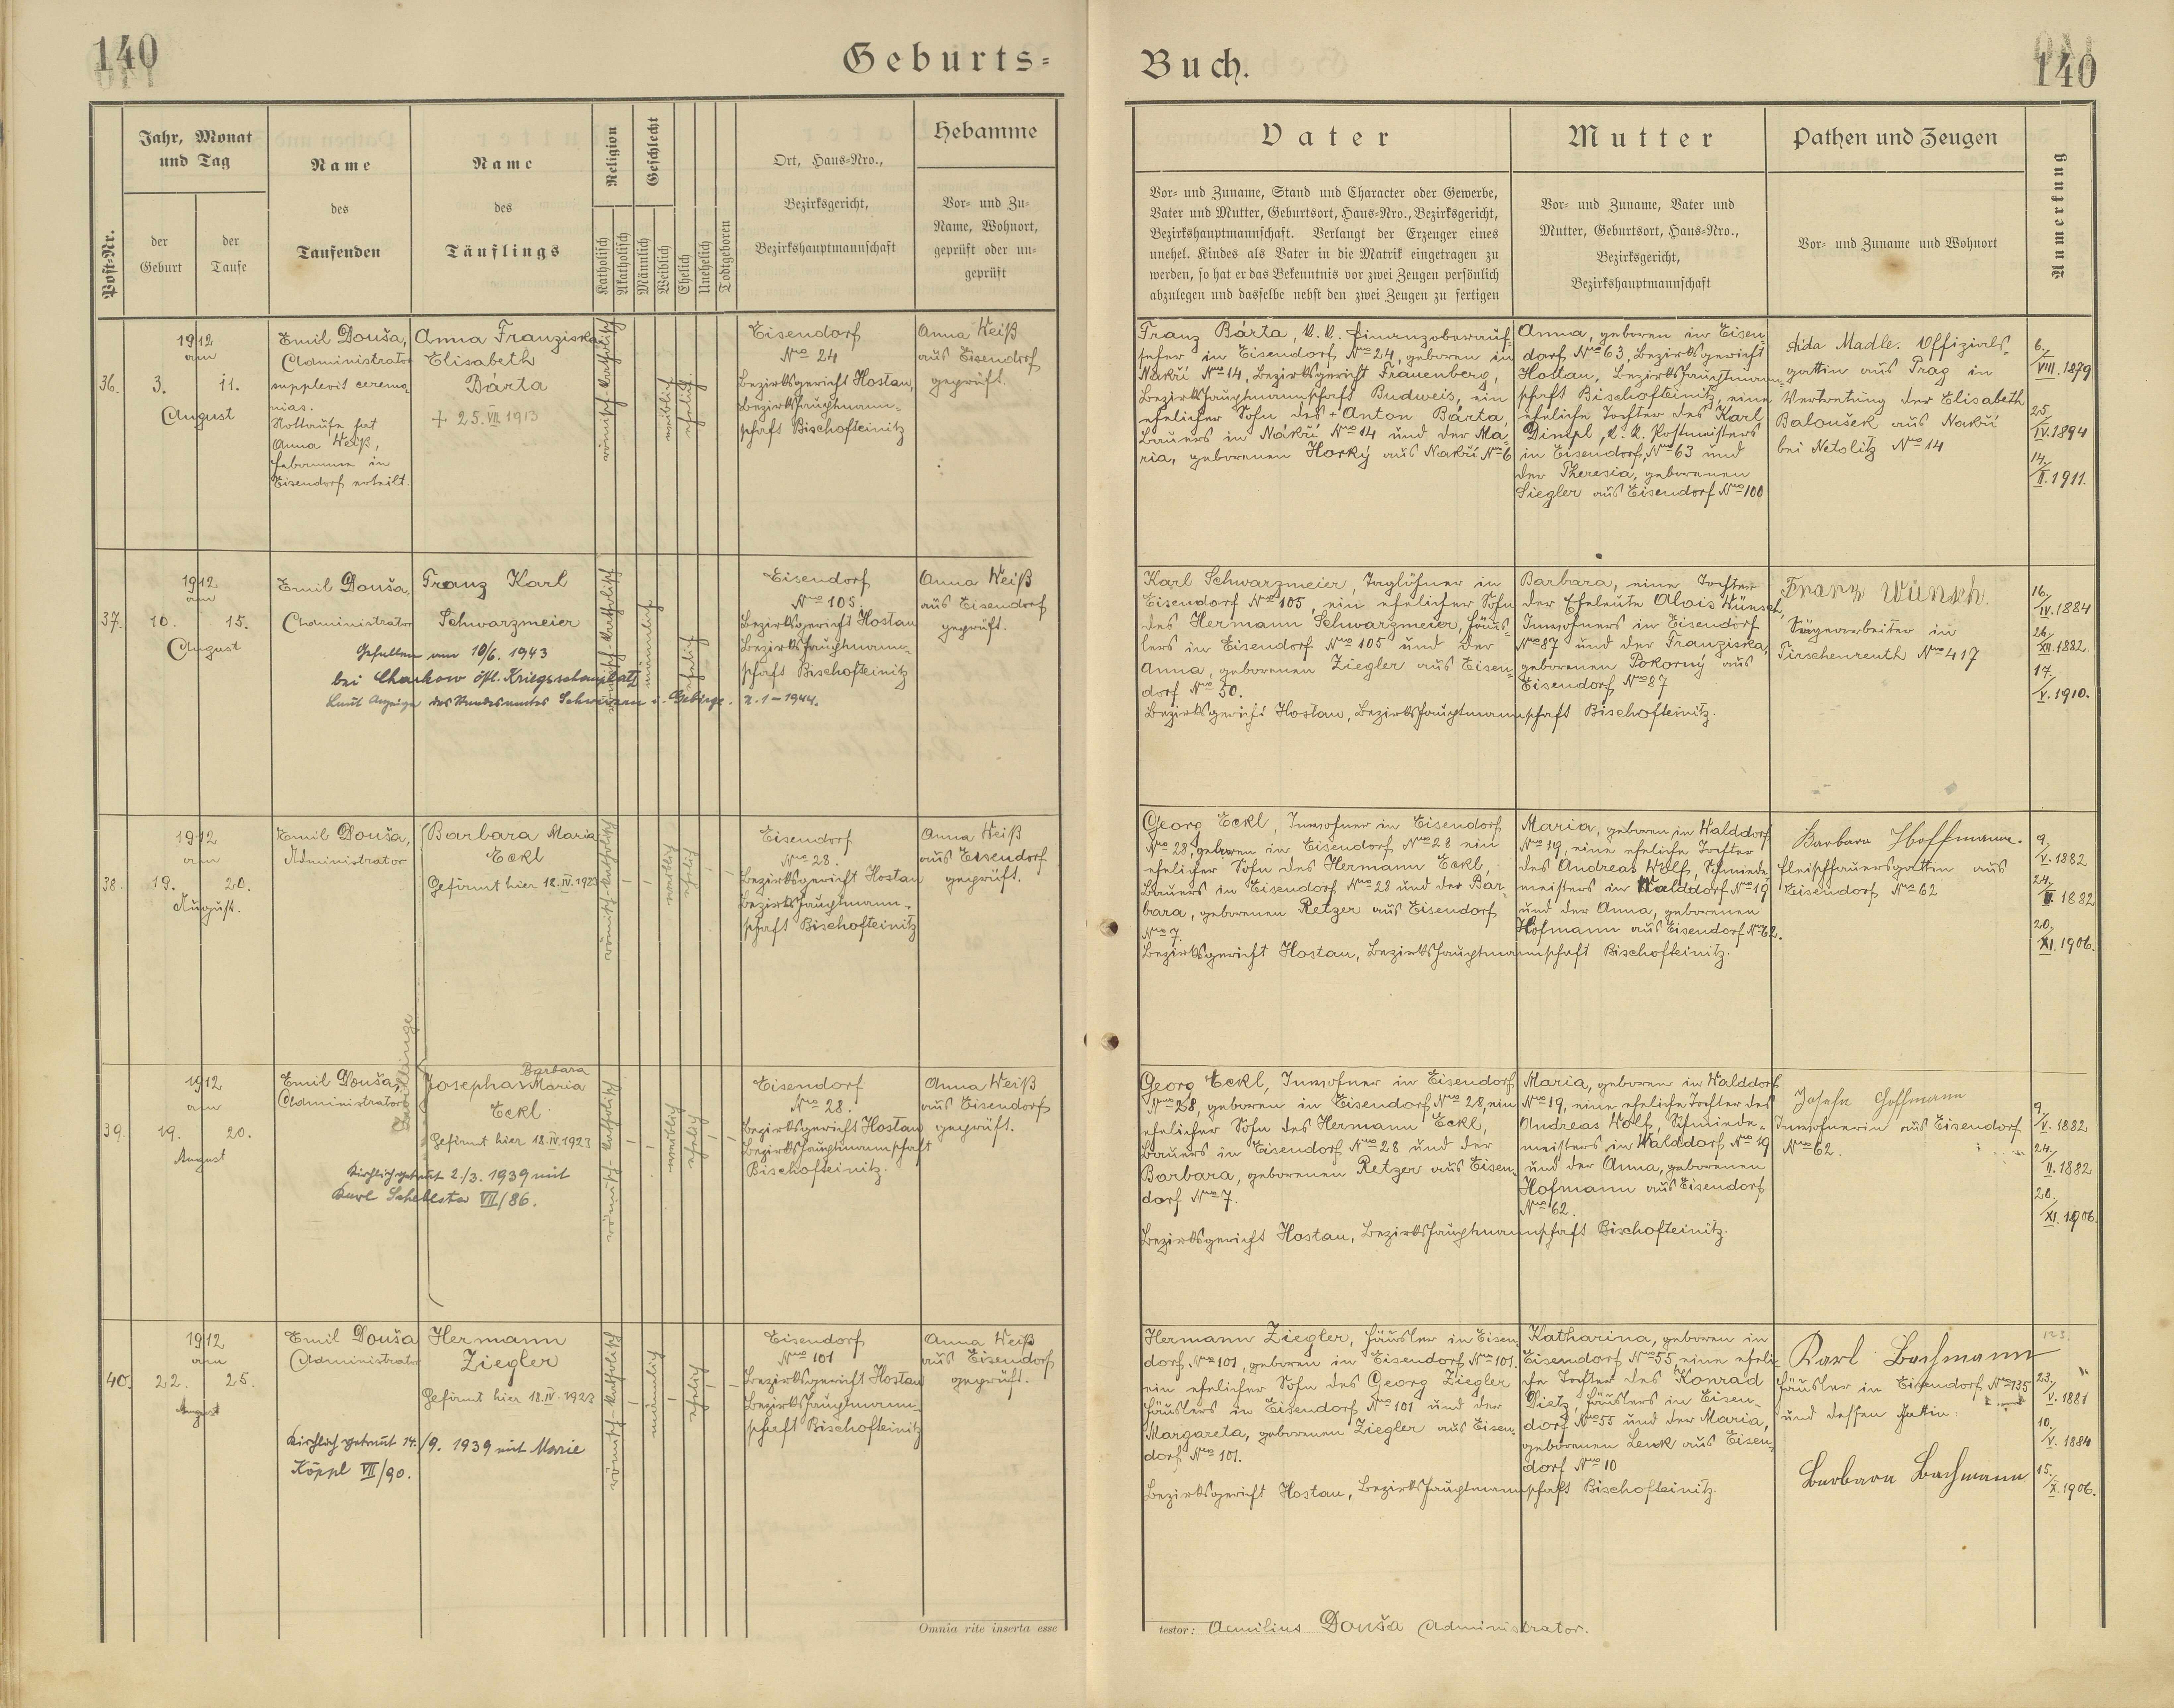 140
Geburts=
Buch.
140
Post-Nr.
Jahr, Monat
und Tag
der
Geburt
der
Taufe
Name
des
Taufenden
Name
des
Täuflings
Religion
Katholisch
Akatholisch
Geschlecht
Männlich
Weiblich
Ehelich
Unehelich
Todtgeboren
Ort, Haus=Nro.,
Bezirksgericht,
Bezirkshauptmannschaft
Hebamme
Vor= und Zu=
Name, Wohnort,
geprüft oder un=
geprüft
Vater
Vor= und Zuname, Stand und Character oder Gewerbe,
Vater und Mutter, Geburtsort, Haus=Nro., Bezirksgericht,
Bezirkshauptmannschaft. Verlangt der Erzeuger eines
unehel. Kindes als Vater in die Matrik eingetragen zu
werden, so hat er das Bekenntnis vor zwei Zeugen persönlich
abzulegen und dasselbe nebst den zwei Zeugen zu fertigen
Mutter
Vor= und Zuname, Vater und
Mutter, Geburtsort, Haus=Nro.,
Bezirksgericht,
Bezirkshauptmannschaft
Pathen und Zeugen
Vor= und Zuname und Wohnort
Anmerkung
36.
1912
am
3. 11.
August
Emil Douša,
Administrator
supplevit ceremo-
nias.
Nottaufe hat
Anna Weiß,
Hebamme in
Eisendorf erteilt.
Anna Franziska
Elisabeth
Bárta
+ 25.VII.1913
römisch-katholisch
weiblich
ehelich
Eisendorf
Nro 24
Bezirksgericht Hostau,
Bezirkshauptmann-
schaft Bischofteinitz
Anna Weiß
aus Eisendorf
geprüft.
Franz Bárta, k. k. Finanzoberauf-
seher in Eisendorf Nro 24, geboren in
Nakří Nro 14, Bezirksgericht Frauenberg,
Bezirkshauptmannschaft Budweis, ein
ehelicher Sohn des + Anton Bárta,
Bauers in Nákří Nro 14 und der Ma-
ria, geborenen Horký aus Nakří Nro 6
Anna, geboren in Eisen-
dorf Nro 63, Bezirksgericht
Hostau, Bezirkshauptmann-
schaft Bischofteinitz, eine
eheliche Tochter des Karl
Dimpl, k. k. Postmeisters
in Eisendorf, Nro 63 und
der Theresia, geborenen
Siegler aus Eisendorf Nro 100
Aida Madle. Offizials-
gattin aus Prag in
Vertretung der Elisabeth
Baloušek aus Nakří
bei Netolitz Nro 14
6./VIII.1879
25./IV.1894
14./II.1911.
37.
1912
am
10. 15.
August
Emil Douša,
Administrator
Franz Karl
Schwarzmeier
Gefallen am 10/6. 1943
bei Charkow östl. Kriegsschauplatz
Laut Anzeige des Standesamtes Schwarzau i. Gebirge. 2. 1 – 1944.
römisch-katholisch
männlich
ehelich
Eisendorf
Nro 105.
Bezirksgericht Hostau
Bezirkshauptmann-
schaft Bischofteinitz
Anna Weiß
aus Eisendorf
geprüft.
Karl Schwarzmeier, Taglöhner in
Eisendorf Nro 105, ein ehelicher Sohn
des Hermann Schwarzmeier, Häus-
lers in Eisendorf Nro 105 und der
Anna, geborenen Ziegler aus Eisen-
dorf Nro 50.
Bezirksgericht Hostau, Bezirkshauptmannschaft Bischofteinitz.
Barbara, eine Tochter
der Eheleute Alois Wünsch,
Inwohners in Eisendorf
Nro 87 und der Franziska,
geborenen Pokorný aus
Eisendorf Nro 87
Franz Wünsch.
Sägearbeiter in
Tirschenreuth Nro 417
16./IV.1884
26./XII.1882.
17./V.1910.
38.
1912
am
19. 20.
August.
Emil Douša,
Administrator
Barbara Maria
Eckl
Gefirmt hier 18.IV.1923
Zwillinge
römisch-katholisch
weiblich
ehelich
Eisendorf
Nro 28.
Bezirksgericht Hostau
Bezirkshauptmann-
schaft Bischofteinitz
Anna Weiß
aus Eisendorf
geprüft.
Georg Eckl, Inwohner in Eisendorf
Nro 28, geboren in Eisendorf Nro 28 ein
ehelicher Sohn des Hermann Eckl,
Bauers in Eisendorf Nro 28 und der Bar-
bara, geborenen Retzer aus Eisendorf
Nro 7.
Bezirksgericht Hostau, Bezirkshauptmannschaft Bischofteinitz.
Maria, geboren in Walddorf
Nro 19, eine eheliche Tochter
des Andreas Wolf, Schmiede-
meisters in Walddorf Nro 19
und der Anna, geborenen
Hofmann aus Eisendorf Nro 62.
Barbara Hoffmann.
Fleischhauersgattin aus
Eisendorf Nro 62
9./V.1882
24./II.1882
20./XI.1906.
39.
1912
am
19. 20.
August
Emil Douša,
Administrator
Barbara
Josepha Maria
Eckl
Gefirmt hier 18.IV.1923
Kirchlich getraut 2./3. 1939 mit
Karl Schebesta VII/86.
römisch-katholisch
weiblich
ehelich
Eisendorf
Nro 28.
Bezirksgericht Hostau
Bezirkshauptmannschaft
Bischofteinitz.
Anna Weiß
aus Eisendorf
geprüft.
Georg Eckl, Inwohner in Eisendorf
Nro 28, geboren in Eisendorf Nro 28, ein
ehelicher Sohn des Hermann Eckl,
Bauers in Eisendorf Nro 28 und der
Barbara, geborenen Retzer aus Eisen-
dorf Nro 7.
Bezirksgericht Hostau, Bezirkshauptmannschaft Bischofteinitz.
Maria, geboren in Walddorf
Nro 19, eine eheliche Tochter des
Andreas Wolf, Schmiede-
meisters in Walddorf Nro 19
und der Anna, geborenen
Hofmann aus Eisendorf
Nro 62.
Josefa Hoffmann
Inwohnerin aus Eisendorf
Nro 62.
9./V.1882
24./II.1882
20./XI.1906.
40.
1912
am
22. 25.
August
Emil Douša
Administrator
Hermann
Ziegler
Gefirmt hier 18.IV.1923
Kirchlich getraut 14./9. 1939 mit Marie
Köppl VII/90.
römisch-katholisch
männlich
ehelich
Eisendorf
Nro 101
Bezirksgericht Hostau
Bezirkshauptmann-
schaft Bischofteinitz
Anna Weiß
aus Eisendorf
geprüft.
Hermann Ziegler, Häusler in Eisen-
dorf Nro 101, geboren in Eisendorf Nro 101.
ein ehelicher Sohn des Georg Ziegler
Häuslers in Eisendorf Nro 101 und der
Margareta, geborenen Ziegler aus Eisen-
dorf Nro 101.
Bezirksgericht Hostau, Bezirkshauptmannschaft Bischofteinitz.
Katharina, geboren in
Eisendorf Nro 55, eine eheli-
che Tochter des Konrad
Dietz, Häuslers in Eisen-
dorf Nro 55 und der Maria,
geborenen Lenk aus Eisen-
dorf Nro 10
Karl Bachmann
Häusler in Eisendorf Nro 135
und dessen Gattin.
Barbara Bachmann
123.
23./V.1881
10./V.1884
15./X.1906.
Omnia rite inserta esse
testor: Aemilius Douša Administrator.